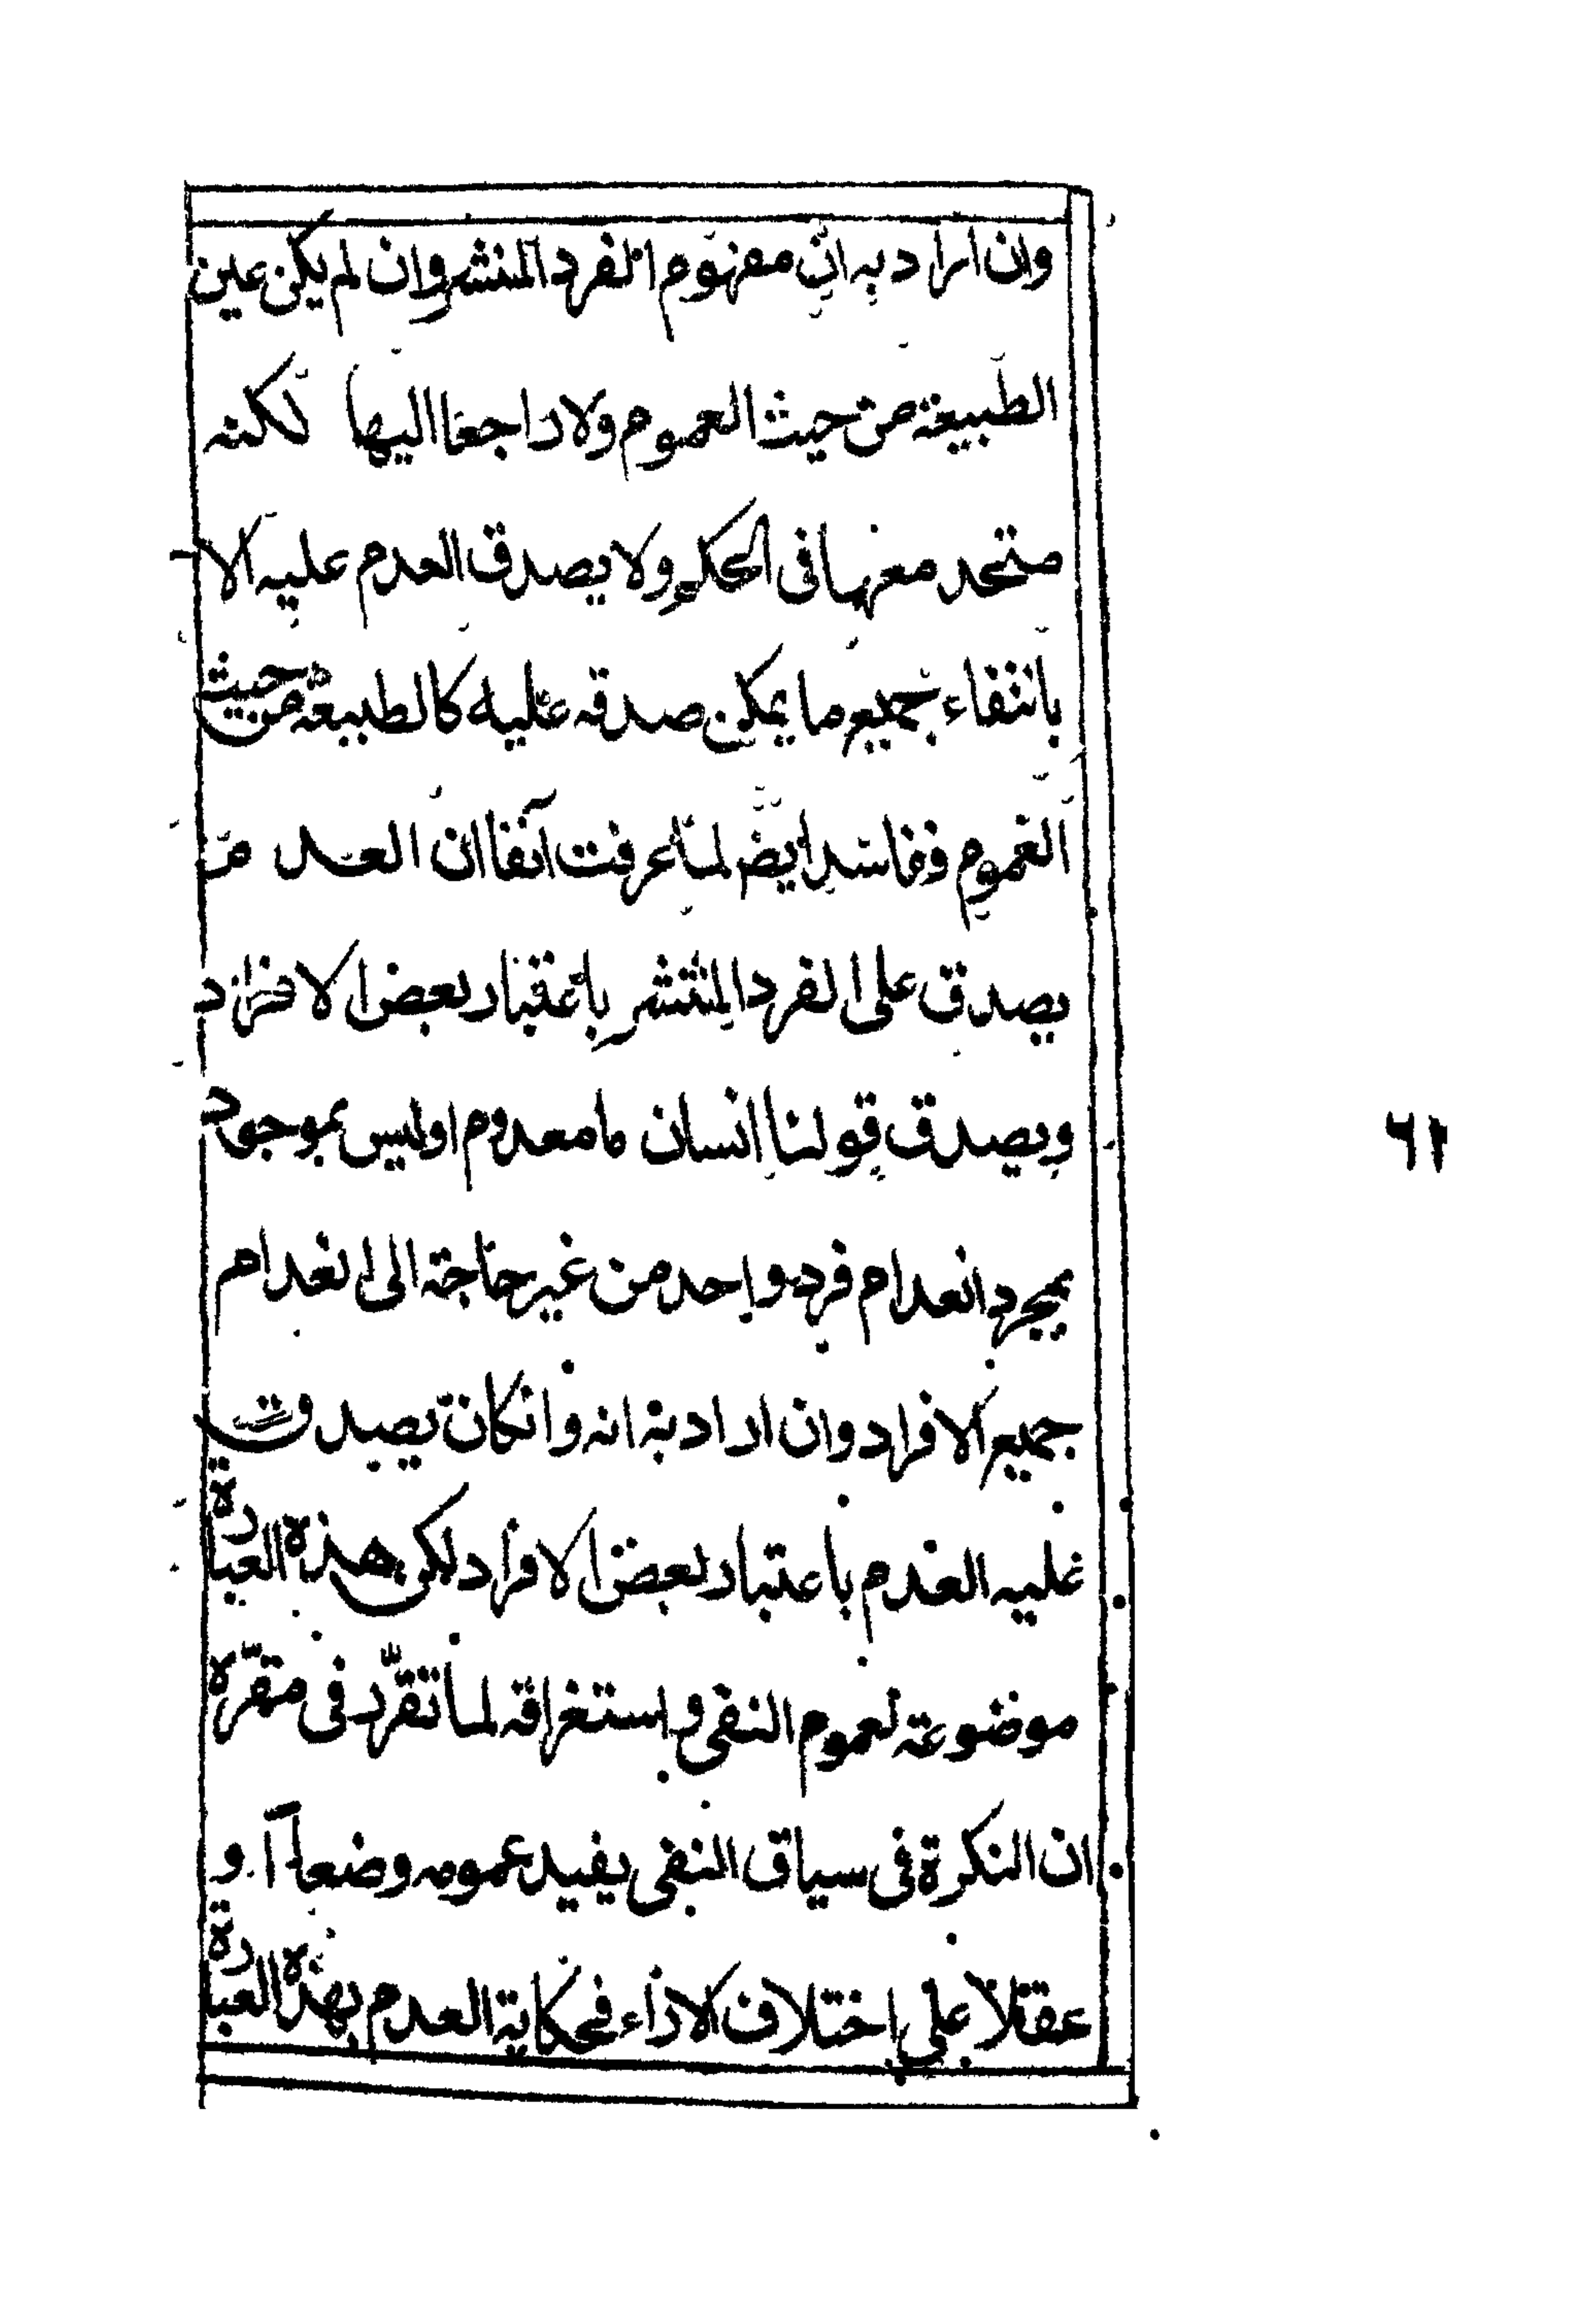 وان اراد به ان مفهوم الفرد المنتشر وان لم يكن عين
الطبيعة من حيث العموم ولا راجعا اليها لكنه
متحد معها فى الحكم ولا يصدق العدم عليه الا
بانتفاء جميع ما يمكن صدقه عليه كالطبيعة من حيث
العموم ففاسد ايض لما عرفت آنفا ان العدم
يصدق على الفرد المنتشر باعتبار بعض الافراد
ويصدق قولنا انسان ما معدوم او ليس بموجود
بمجرد انعدام فرد واحد من غير حاجة الى انعدام
جميع الافراد وان اراد به انه وانكان يصدق
عليه العدم باعتبار بعض الافراد لكن هذه العبارة
موضوعة لعموم النفى واستغراقه لما تقرّر فى مقرّه
ان النكرة فى سياق النفى يفيد عمومه وضعاً او
عقلا على اختلاف الاراء فحكاية العدم بهذه العبارة
٦٢